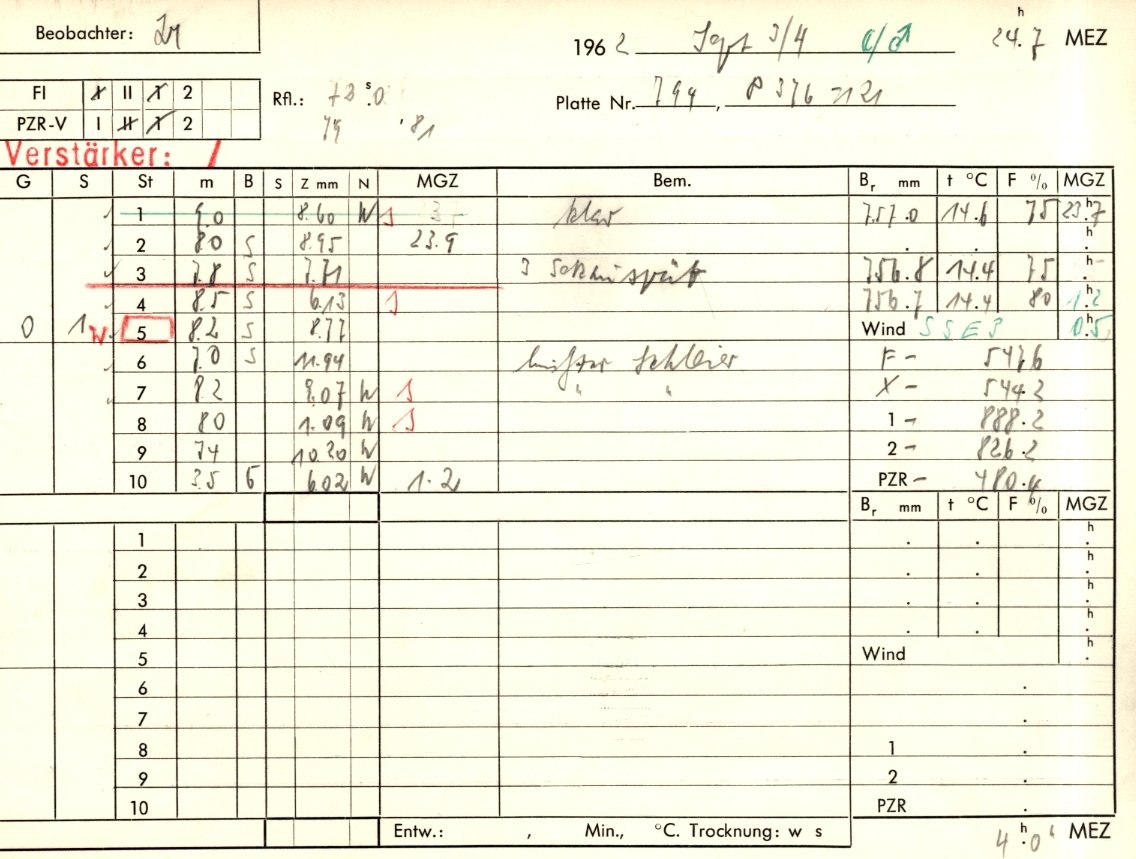 Beobachter:
196 2 Sept 3/4 24.7 h MEZ
FI I II 1 2 Rfl.: 73 s.0 Platte Nr. 794, P 376
PZR-V I II 1 2 79 .81
Verstärker: 1
G S St m B S Z mm N MGZ Bem. Br mm t °C F % MGZ
1 9.0 8.60 W klar 757.0 14.6 75 23.h7
2 8.0 S 8.95 23.9 . . h.
3 7.8 S 7.71 3 756.8 14.4 75 h.
4 8.5 S 6.13 756.7 14.4 80 1.h2
0 1 W 5 8.2 S 8.77 Wind SSE3 0.h5
6 7.0 S 11.94 Schleier F - 547.6
7 8.2 8.07 W " " X - 544.2
8 8.0 1.09 W 1 - 888.2
9 7.4 10.20 W 2 - 826.2
10 3.5 6 6.02 W 1.2 PZR - 480.4
Br mm t °C F % MGZ
1 . . h.
2 . . h.
3 . . h.
4 . . h.
5 Wind h.
6 .
7 .
8 1 .
9 2 .
10 PZR .
Entw.: , Min., °C. Trocknung: w s 4 h.0 MEZ